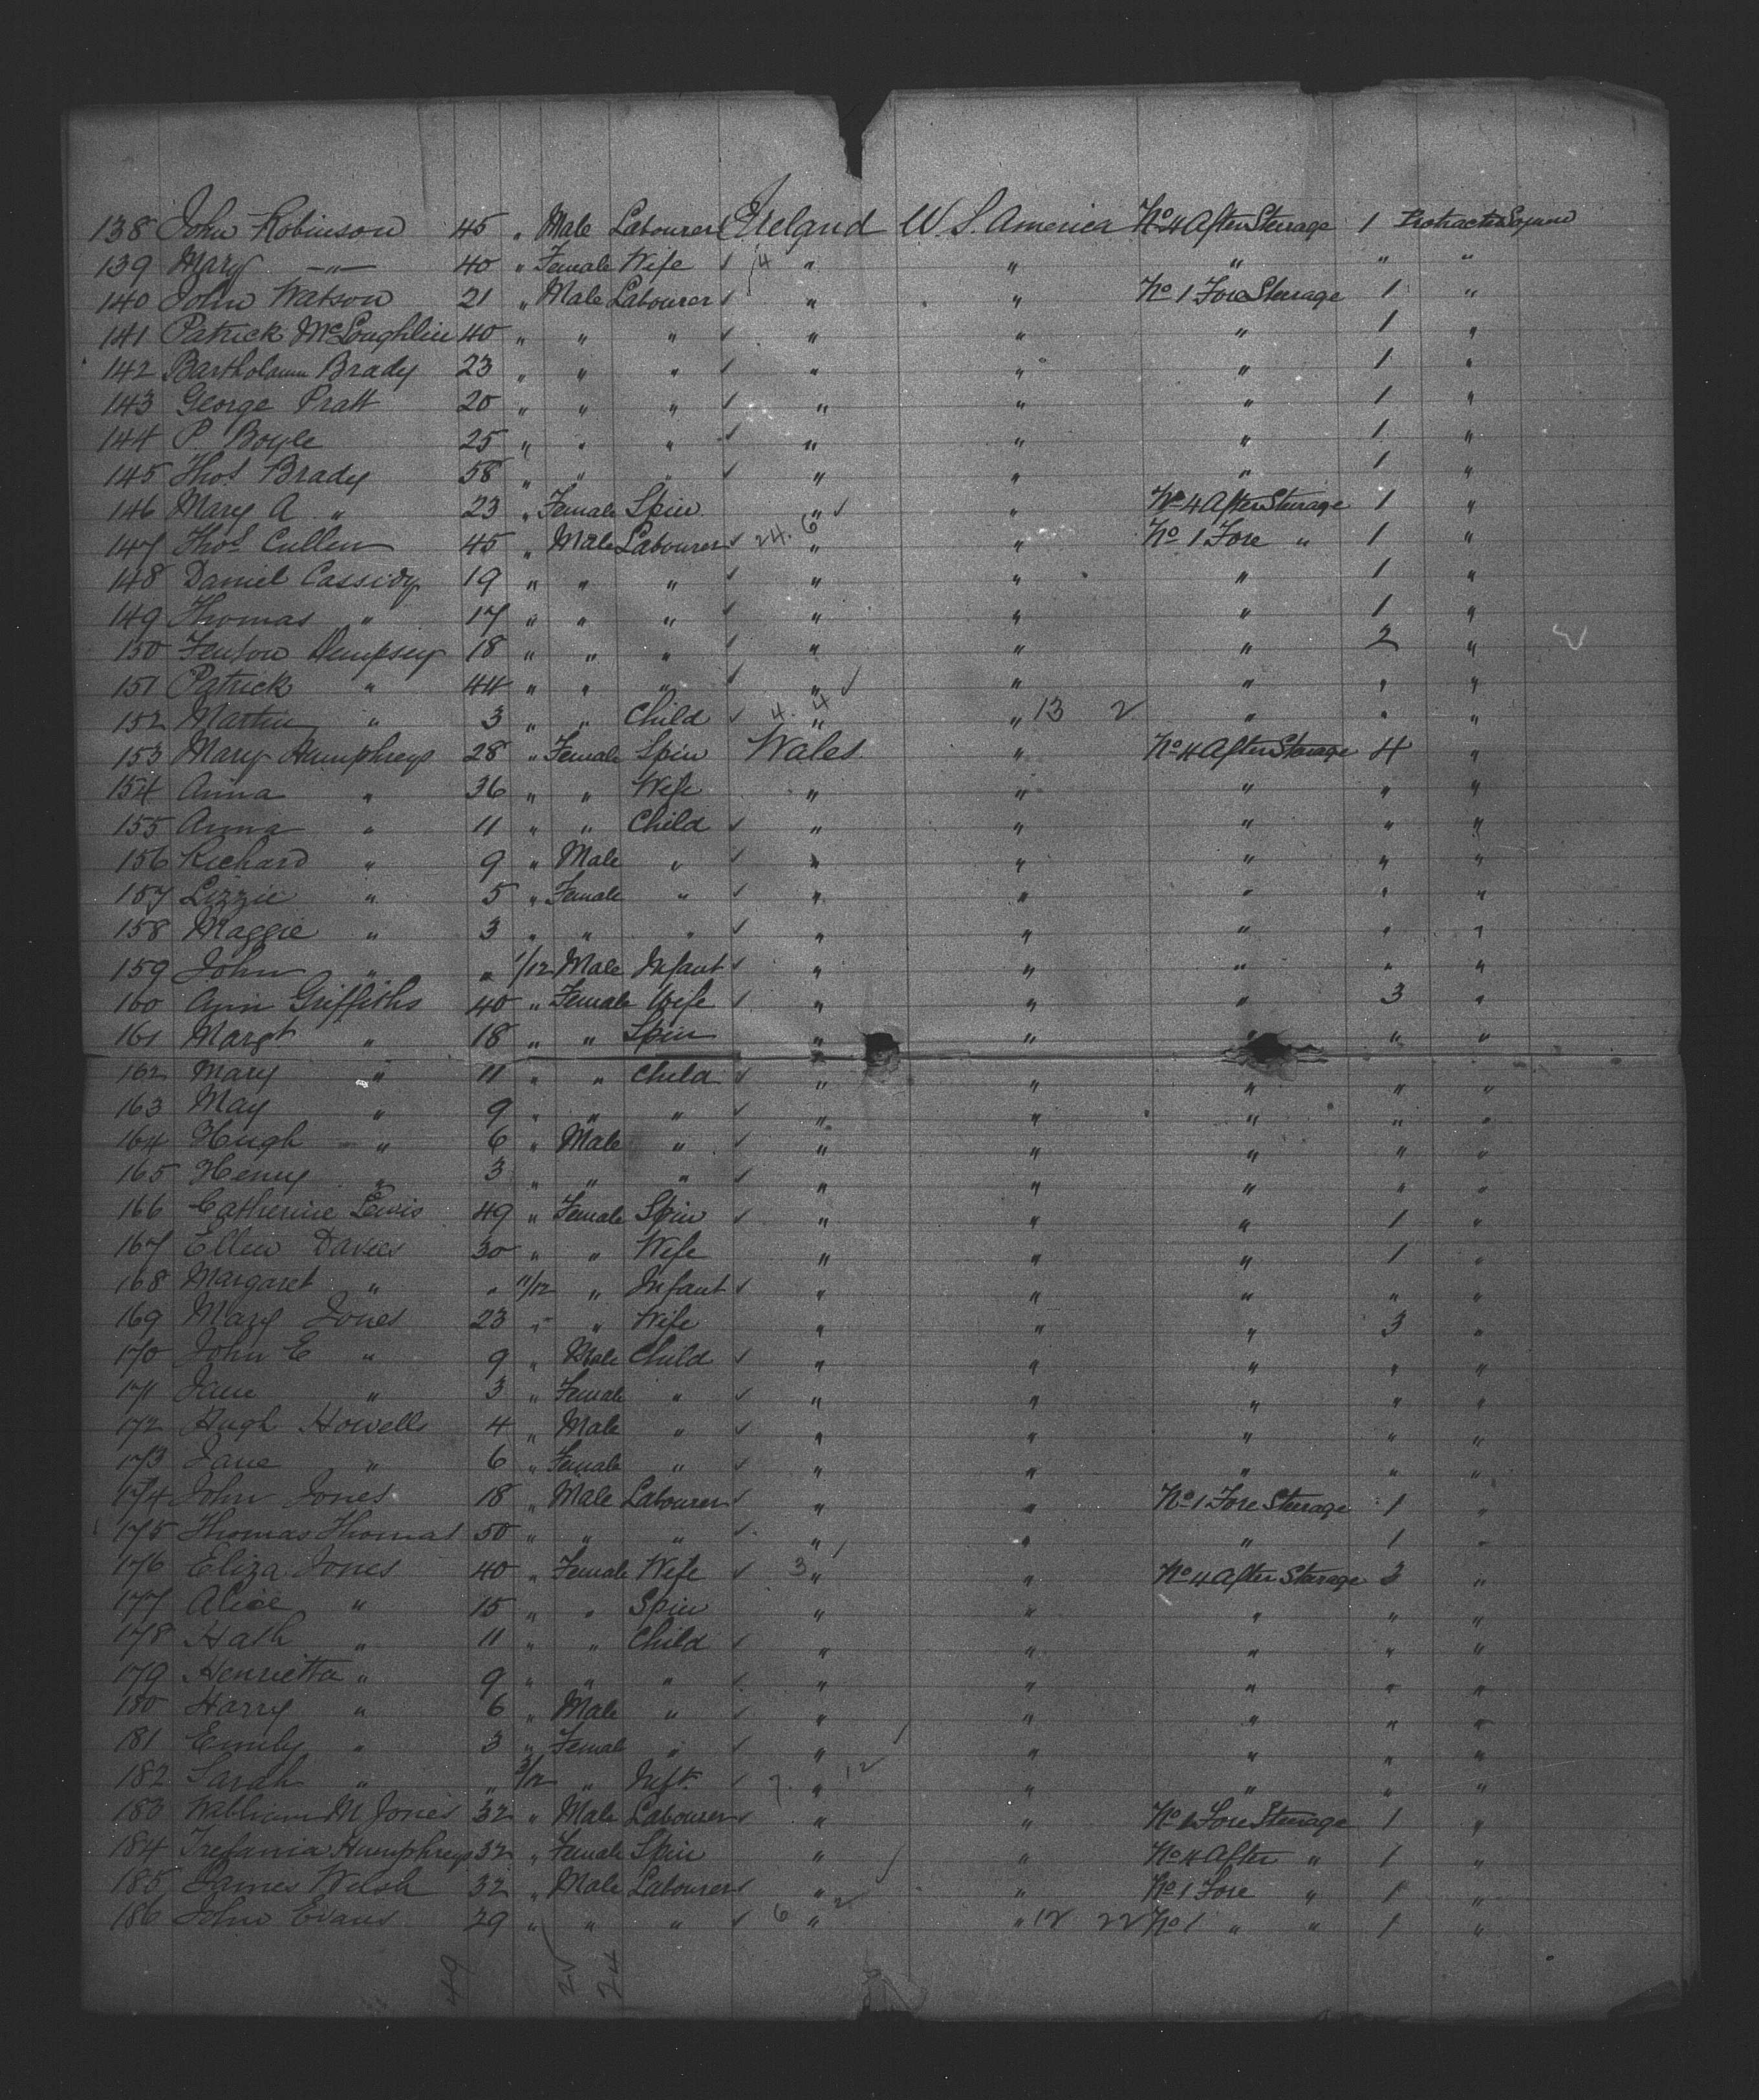 138 John Robinson 45 " Male Labourer Ireland U.S. America No 4 After Steerage 1 Protracted Sojourn
139 Mary —"— 40 " Female Wife ✓ 14 " " " " "
140 John Watson 21 " Male Labourer ✓ " " No 1 Fore Steerage 1 "
141 Patrick McLoughlin 40 " " " ✓ " " " 1 "
142 Bartholamu Brady 23 " " " ✓ " " " 1 "
143 George Pratt 20 " " " ✓ " " " 1 "
144 P. Boyle 25 " " " ✓ " " " 1 "
145 Thos Brady 58 " " " ✓ " " " 1 "
146 Mary A " 23 " Female Spin " ✓ " No 4 After Steerage 1 "
147 Thos Cullen 45 " Male Labourer ✓ 24. 6 " " No 1 Fore " 1 "
148 Daniel Cassidy 19 " " " ✓ " " " 1 "
149 Thomas " 17 " " " ✓ " " " 1 "
150 Fenton Dempsey 18 " " " ✓ " " " 2 "
151 Patrick " 44 " " " ✓ " ✓ " " " "
152 Martin " 3 " " Child ✓ 4. 4 " " 13 2 " " "
153 Mary Humphreys 28 " Female Spin Wales " No 4 After Steerage 4 "
154 Anna " 36 " " Wife " " " " "
155 Anna " 11 " " Child ✓ " " " " "
156 Richard " 9 " Male " ✓ " " " " "
157 Lizzie " 5 " Female " ✓ " " " " "
158 Maggie " 3 " " " ✓ " " " " "
159 John " " 1/12 Male Infant ✓ " " " " "
160 Ann Griffiths 40 " Female Wife ✓ " " " 3 "
161 Margt " 18 " " Spin " " " " "
162 Mary " 11 " " Child ✓ " " " " "
163 May " 9 " " " ✓ " " " " "
164 Hugh " 6 " Male " ✓ " " " " "
165 Henry " 3 " " " ✓ " " " " "
166 Catherine Lewis 49 " Female Spin ✓ " " " 1 "
167 Ellen Davies 30 " " Wife " " " 1 "
168 Margaret " " 11/12 " Infant ✓ " " " " "
169 Mary Jones 23 " " Wife " " " 3 "
170 John E " 9 " Male Child ✓ " " " " "
171 Jane " 3 " Female " ✓ " " " " "
172 Hugh Howells 4 " Male " ✓ " " " " "
173 Jane " 6 " Female " ✓ " " " " "
174 John Jones 18 " Male Labourer ✓ " " No 1 Fore Steerage 1 "
175 Thomas Thomas 50 " " " ✓ " " " 1 "
176 Eliza Jones 40 " Female Wife ✓ 3 " " No 4 After Steerage 3 "
177 Alice " 15 " " Spin " " " " "
178 Hath " 11 " " Child ✓ " " " " "
179 Henrietta " 9 " " " ✓ " " " " "
180 Harry " 6 " Male " ✓ " " " " "
181 Emily " 3 " Female " ✓ " " " " "
182 Sarah " " 3/12 " Inft ✓ 7. " 12 " " " "
183 William M Jones 32 " Male Labourer ✓ " " No 1 Fore Steerage 1 "
184 Humphreys 32 " Female Spin " " No 4 After " 1 "
185 James Welsh 32 " Male Labourer ✓ " 2 " No 1 Fore " 1 "
186 John Evans 29 " " " ✓ 6 " " 12 22 No 1 " " 1 "
49 24